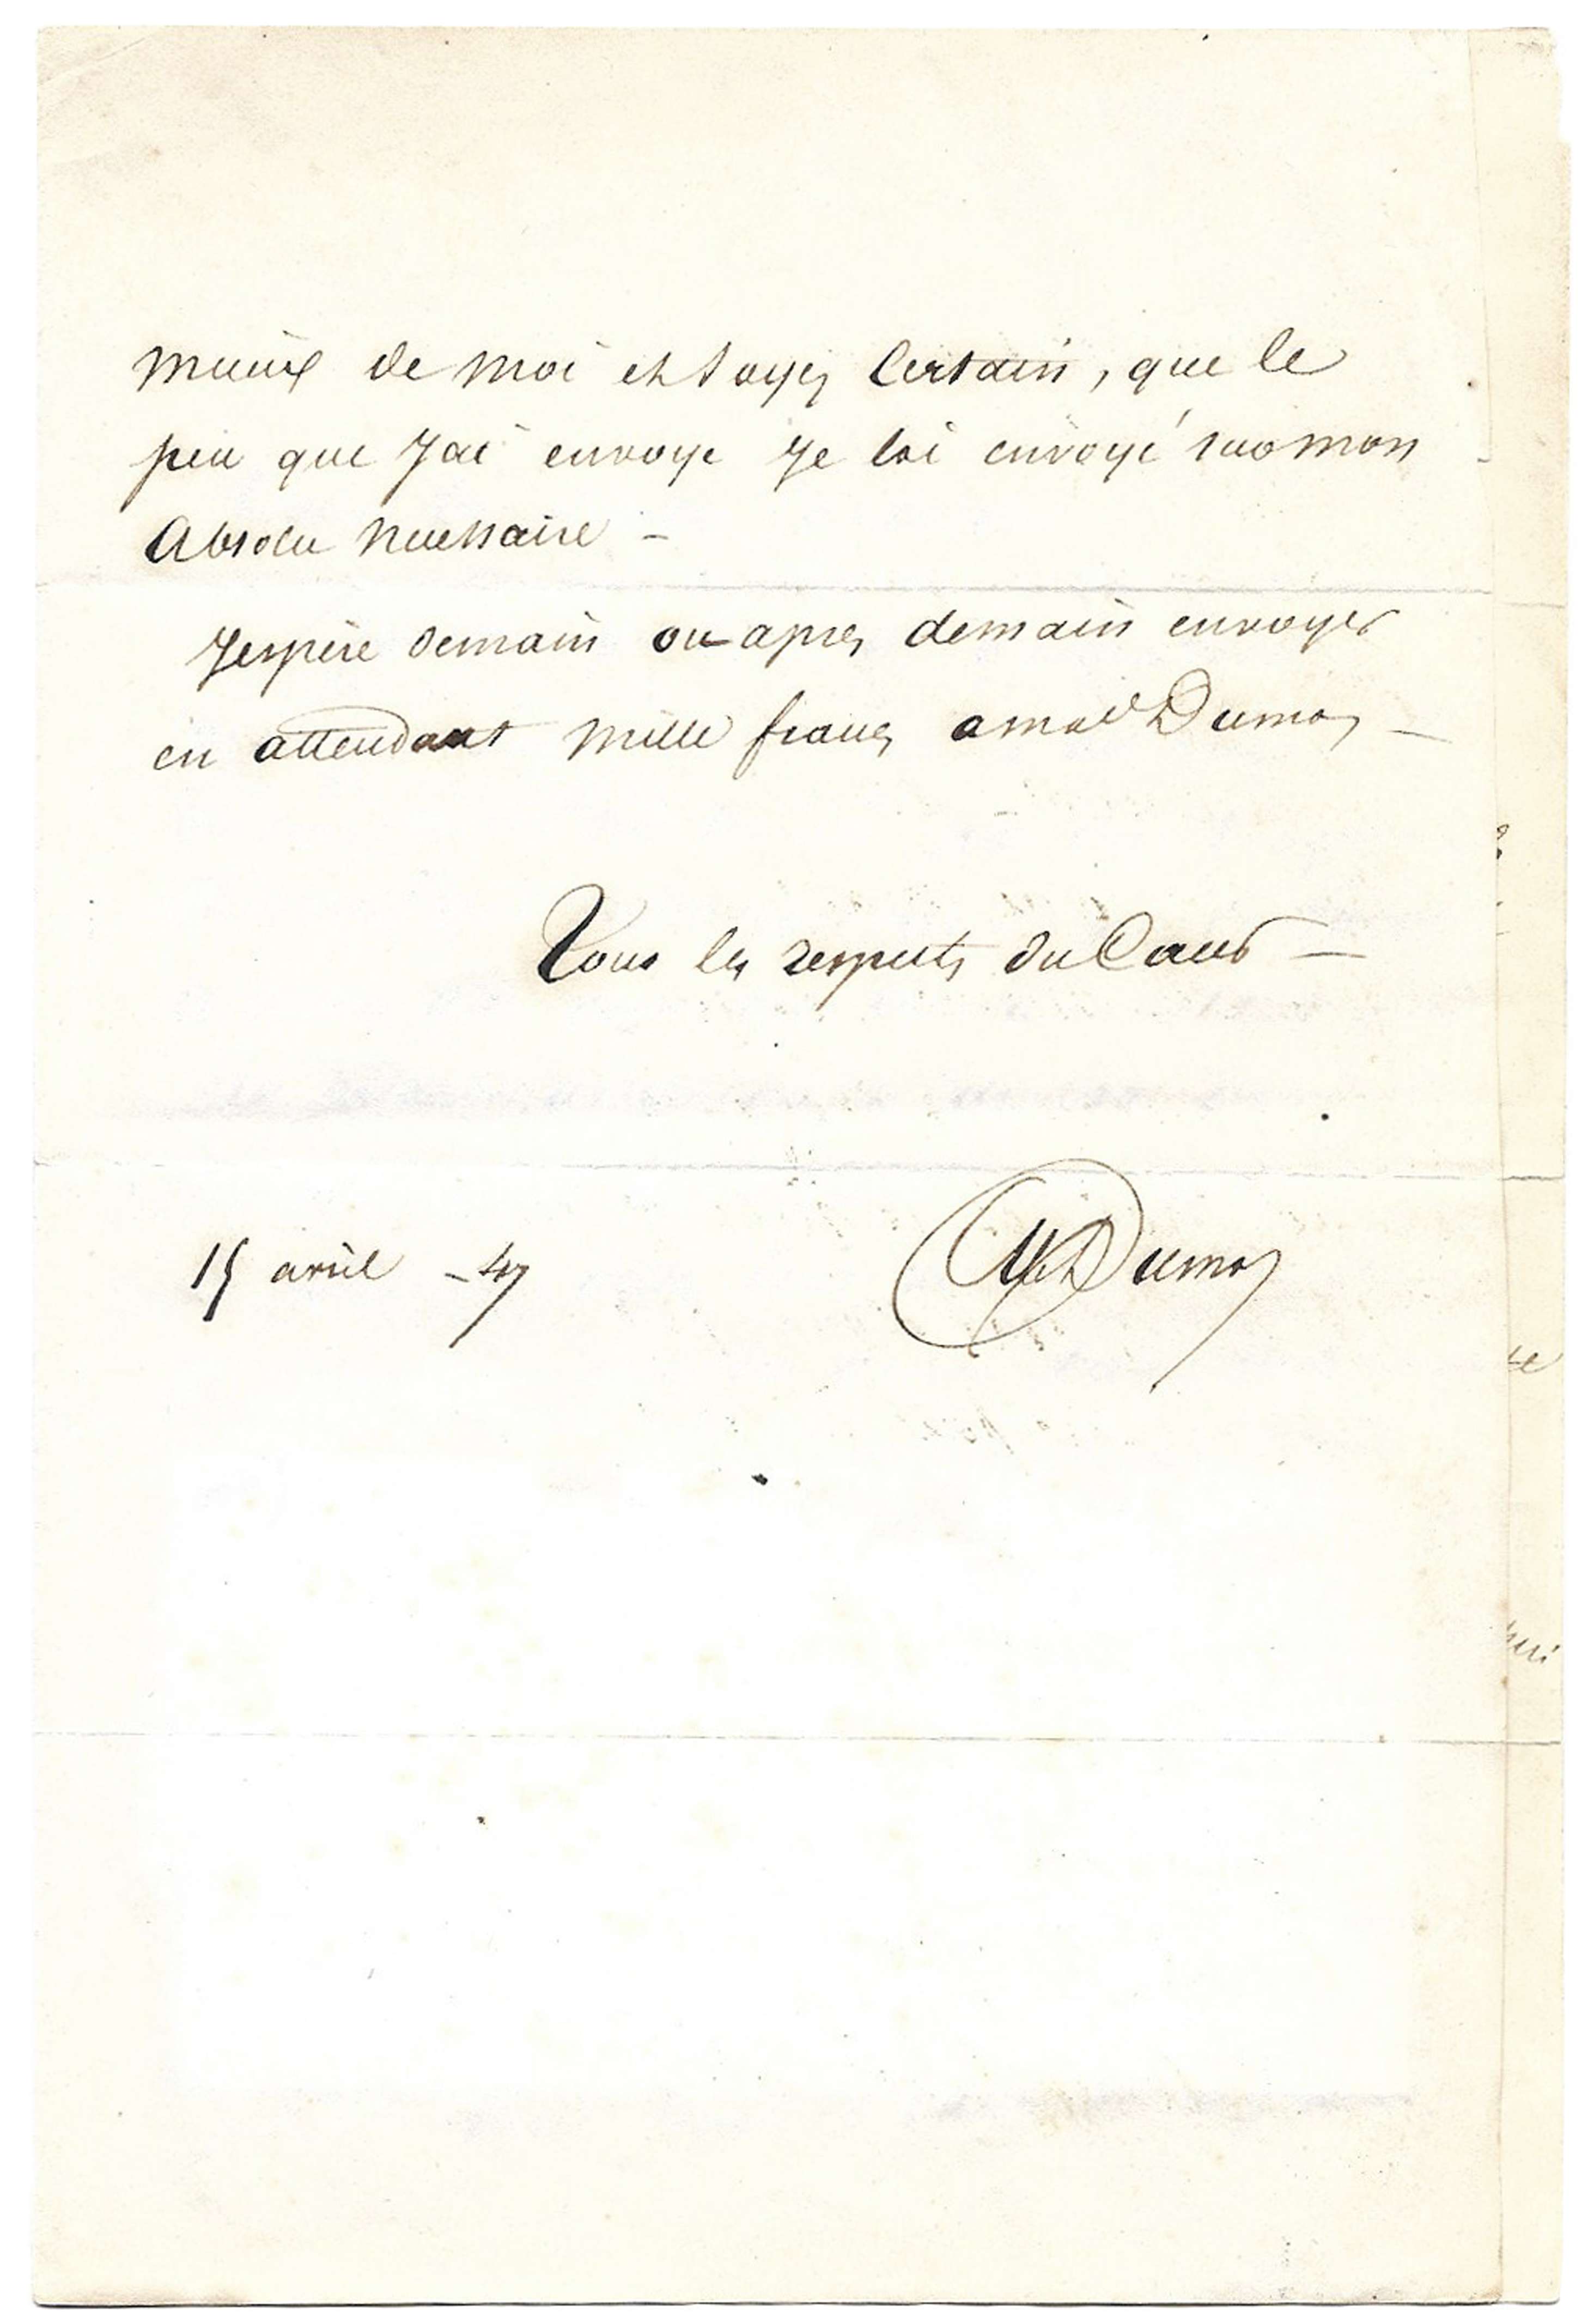 mieux de moi et soyez certain, que le
peu que J'ai envoye Je l'ai envoyé sur mon
Absolu necessaire –
J'espère demain ou apres demain envoyer
en attendant mille francs a mad Dumas –
Tous les respects du Cœur –
15 avril – 47
Alex Dumas